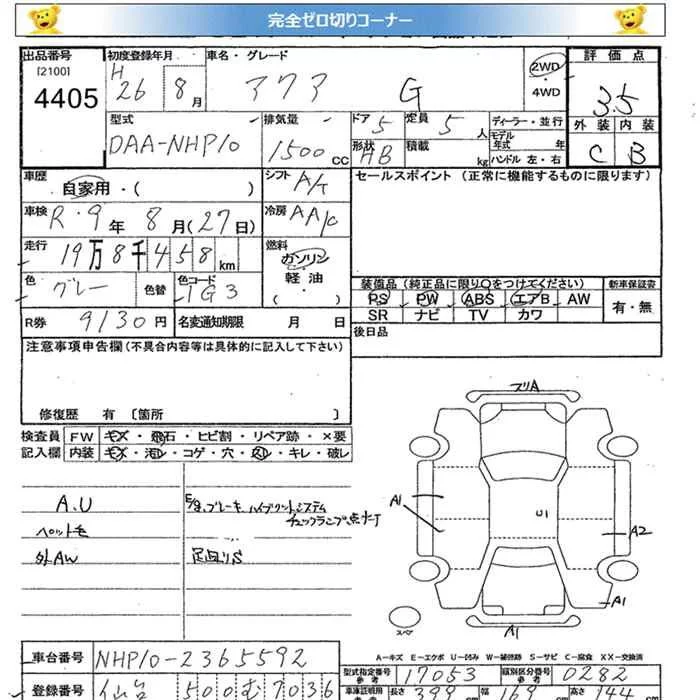 完全ゼロ切りコーナー
出品番号 初度登録年月 車名・グレード 2WD 評価点
[2100] H 26 8月 アクア G ・4WD 3.5
4405 型式 排気量 ドア 5 定員 5人 ディーラー・並行 外装 内装
DAA-NHP10 1500cc 形状 HB 積載 kg モデル年式 年 C B
ハンドル 左・右
車歴 自家用・( ) シフト A/T セールスポイント (正常に機能するものに限ります)
車検 R・9年 8月(27日) 冷房 AA/C
走行 19万8千458km 燃料 ガソリン
軽油
・( )
色 グレー 色替 色コード 1G3 装備品 (純正品に限り○をつけてください) 新車保証書
PS PW ABS エアB AW 有・無
R券 9130円 名変通知期限 月 日 SR ナビ TV カワ
注意事項申告欄(不具合内容等は具体的に記入して下さい) 後日品
修復歴 有 〔箇所 〕
検査員 FW キズ・飛石・ヒビ割・リペア跡・×要
記入欄 内装 キズ・汚レ・コゲ・穴・スレ・キレ・破レ
A.U E/g、ブレーキ、ハイブリットシステム
チェックランプ点灯
ペット毛
外AW 足回りS
スリA
A1 U1 A2
A1
スペア A1
A-キズ E-エクボ U-凹み W-補修跡 S-サビ C-腐食 XX-交換済
車台番号 NHP10-2365592 型式指定番号 参考 17053 類別区分番号 参考 0282
登録番号 仙台 500 む 7036 車庫証明用 参考 長さ 399cm 幅 169cm 高さ 144cm